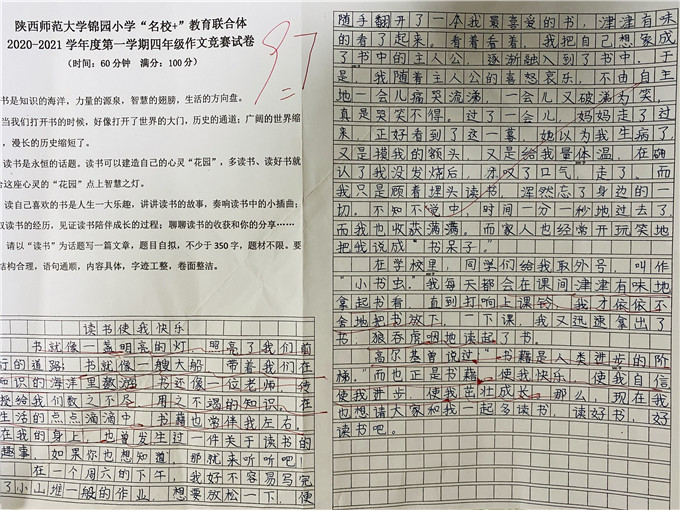 陕西师范大学锦园小学“名校+”教育联合体
2020-2021学年度第一学期四年级作文竞赛试卷
（时间：60分钟 满分：100分）
97
书是知识的海洋，力量的源泉，智慧的翅膀，生活的方向盘。
当我们打开书的时候，好像打开了世界的大门，历史的通道；广阔的世界缩
，漫长的历史缩短了。
读书是永恒的话题。读书可以建造自己的心灵“花园”，多读书、读好书就
给这座心灵的“花园”点上智慧之灯。
读自己喜欢的书是人生一大乐趣，讲讲读书的故事，奏响读书中的小插曲；
叙读书的经历，见证读书陪伴成长的过程；聊聊读书的收获和你的分享……
请以“读书”为话题写一篇文章，题目自拟，不少于350字，题材不限。要
结构合理，语句通顺，内容具体，字迹工整，卷面整洁。
读书使我快乐
书就像一盏明亮的灯，照亮了我们前
行的道路；书就像一艘大船，带着我们在
知识的海洋里遨游；书还像一位老师，使
授给我们数之不尽、用之不竭的知识。在
生活的点点滴滴中，书籍也常伴我左右。
在我的身上，也曾发生过一件关于读书的
趣事，如果你也想知道，那就来听听吧！
在一个周六的下午，我好不容易写完
了小山堆一般的作业，想要放松一下，便
随手翻开了一本我最喜爱的书，津津有味
的看了起来。看着看着，我把自己想象成
了书中的主人公，逐渐融入到了书中，于
是“我随着主人公的喜怒哀乐，不由自主
地一会儿痛哭流涕，一会儿又破涕为笑，
真是哭笑不得。过了一会儿，妈妈走了过
来，正好看到了这一幕，她以为我生病了，
又是摸我的额头，又是给我量体温，在确
认了我没发烧后，才叹了口气，走了。而
我只是顾着埋头读书，浑然忘了身边的一
切。不知不觉中，时间一分一秒地过去了，
而我也收获满满。而家人也经常开玩笑地
把我说成“书呆子”。
在学校里，同学们给我取外号，叫作
“小书虫。”我每天都会在课间津津有味地
拿起书看，直到打响上课铃，我才依依不
舍地把书放下，一下课，我又迅速拿出了
书，狼吞虎咽地读起了书。
高尔基曾说过：“书籍是人类进步的阶
梯。”而也正是书籍，使我快乐，使我自信
使我进步，使我茁壮成长。那么，现在我
也想请大家和我一起多读书，读好书，好
读书吧。